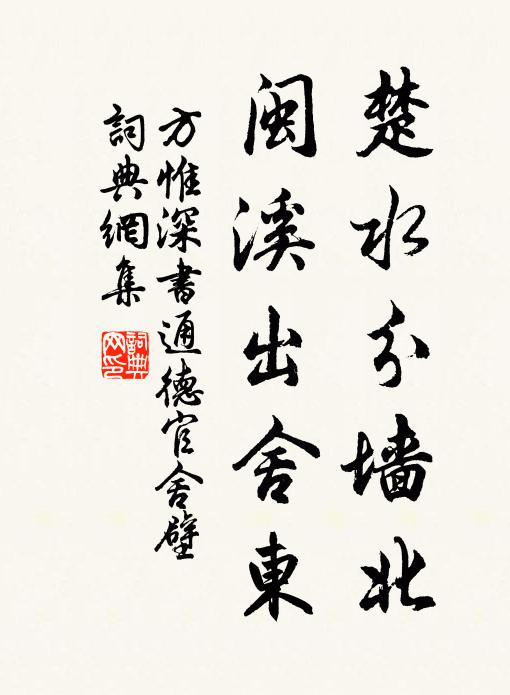 楚水分墙北
闽溪出舍東
方惟深書通德官舍壁
詞典網集
詞典網印